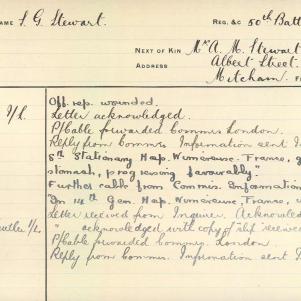 NAME S. G. Stewart. REG. &c 50th Batt
NEXT OF KIN Mr A. M. Stewart
ADDRESS Albert Street
Mitcham.
Off. rep. wounded.
Letter acknowledged.
P/Cable forwarded Commrs London.
Reply from Commrs. Information sent
8th Stationary Hosp. Wimereux. France,
stomach, progressing favourably.
Further cable from Commrs. Information
In 14th Gen. Hosp. Wimereux. France,
Letter received from Inquirer. Acknowledged
" acknowledged with copy of slip
P/Cable forwarded Commrs. London.
Reply from Commrs. Information sent